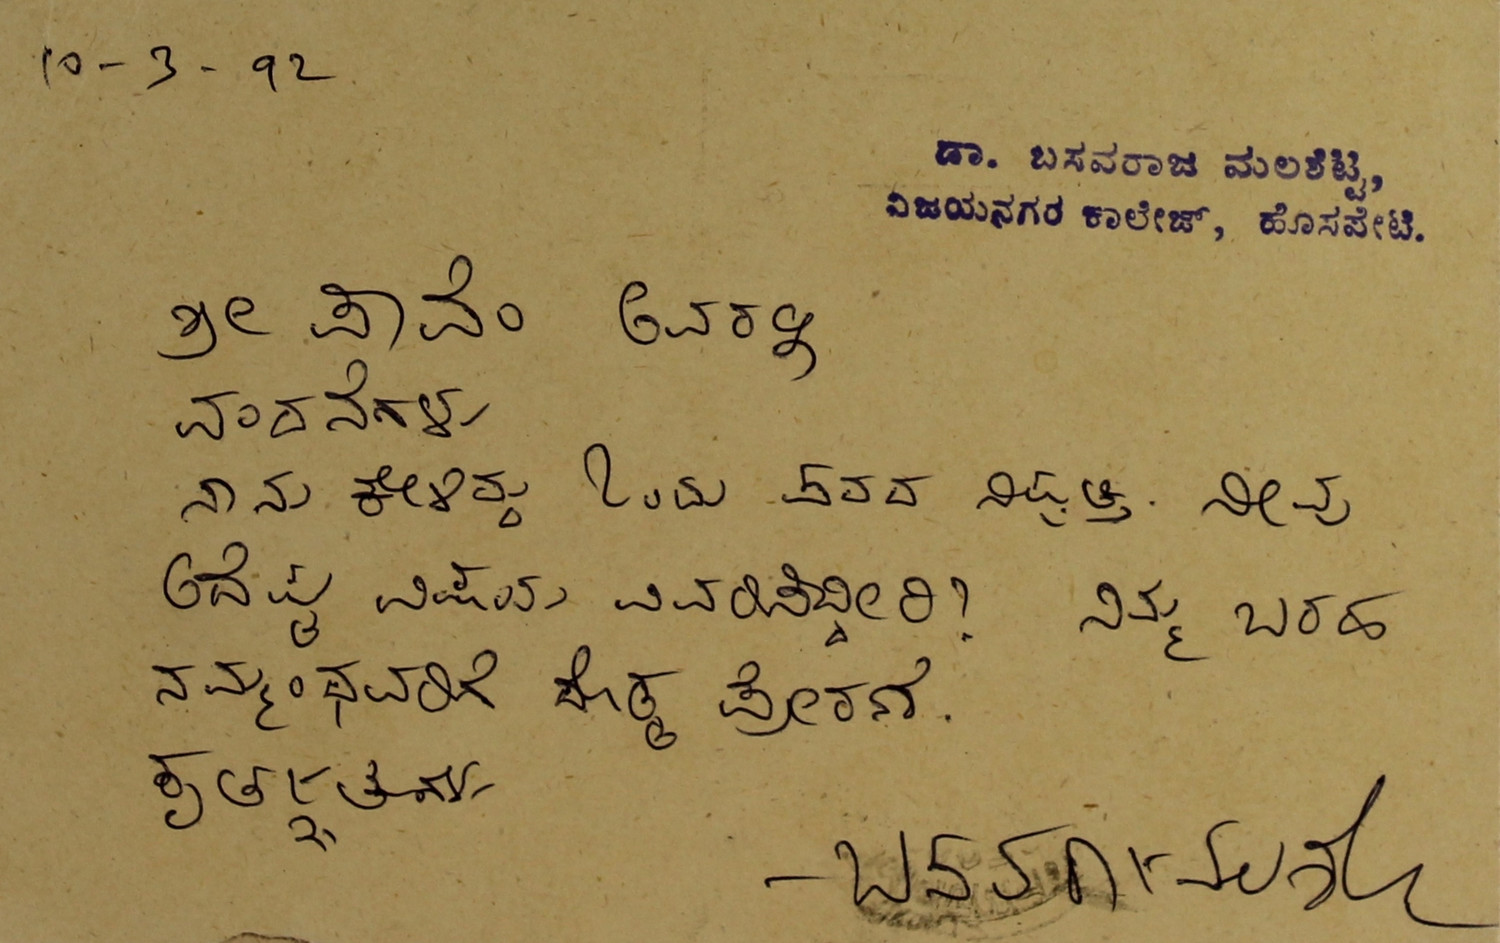 10-3-92
ಡಾ. ಬಸವರಾಜ ಮಲಶೆಟ್ಟಿ,
ವಿಜಯನಗರ ಕಾಲೇಜ್, ಹೊಸಪೇಟೆ.
ಶ್ರೀ ಪಾವೆಂ ಅವರಲ್ಲಿ
ವಂದನೆಗಳು
ನಾನು ಕೇಳಿದ್ದು ಒಂದು ಪದದ ನಿಷ್ಪತ್ತಿ. ನೀವು
ಅದೆಷ್ಟು ವಿಷಯ ವಿವರಿಸಿದ್ದೀರಿ? ನಿಮ್ಮ ಬರಹ
ನಮ್ಮಂಥವರಿಗೆ ಶ್ರೇಷ್ಠ ಪ್ರೇರಣೆ.
ಕೃತಜ್ಞತೆಗಳು
- ಬಸವರಾಜ ಮಲಶೆಟ್ಟಿ